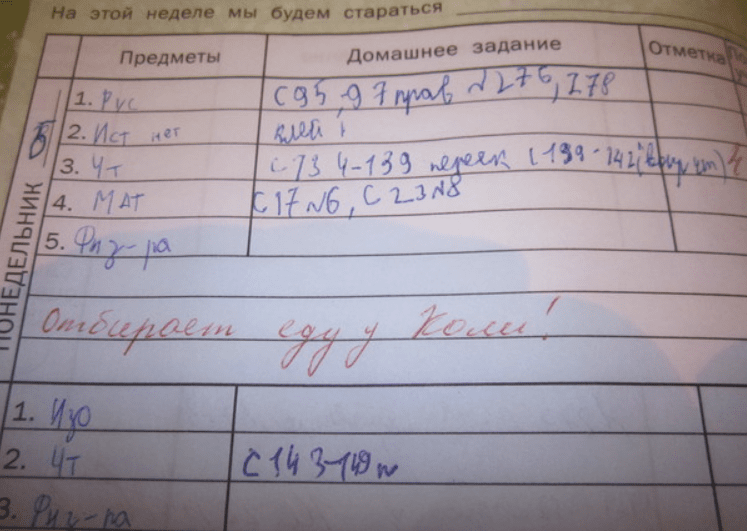 На этой неделе мы будем стараться
Предметы Домашнее задание Отметка
ПОНЕДЕЛЬНИК
1. Рус С 95, 97 прав №276, 278
2. Ист нет клей
3. Чт С 134-139 С 139-142
4. МАТ С 17 №6, С 23 №8
5. Физ-ра
Отбирает еду у Коли!
1. Изо
2. Чт С 143-149
3. Физ-ра